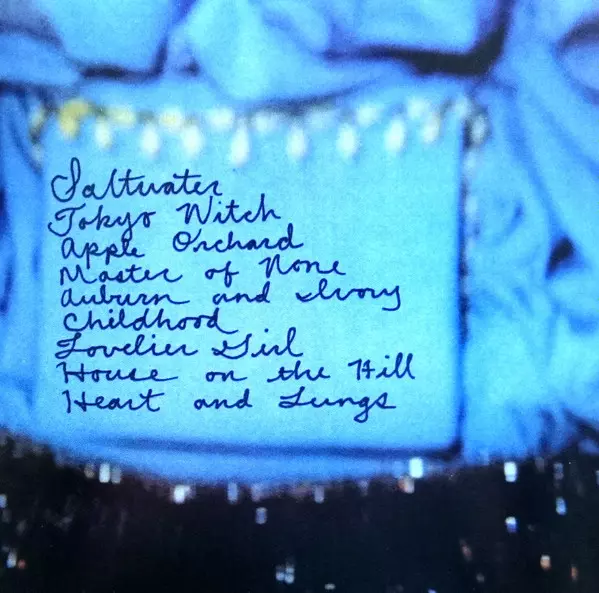 Saltwater
Tokyo Witch
Apple Orchard
Master of None
Auburn and Ivory
Childhood
Lovelier Girl
House on the Hill
Heart and Lungs